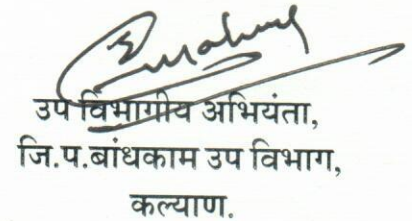 उप विभागीय अभियंता,
जि.प.बांधकाम उप विभाग,
कल्याण.